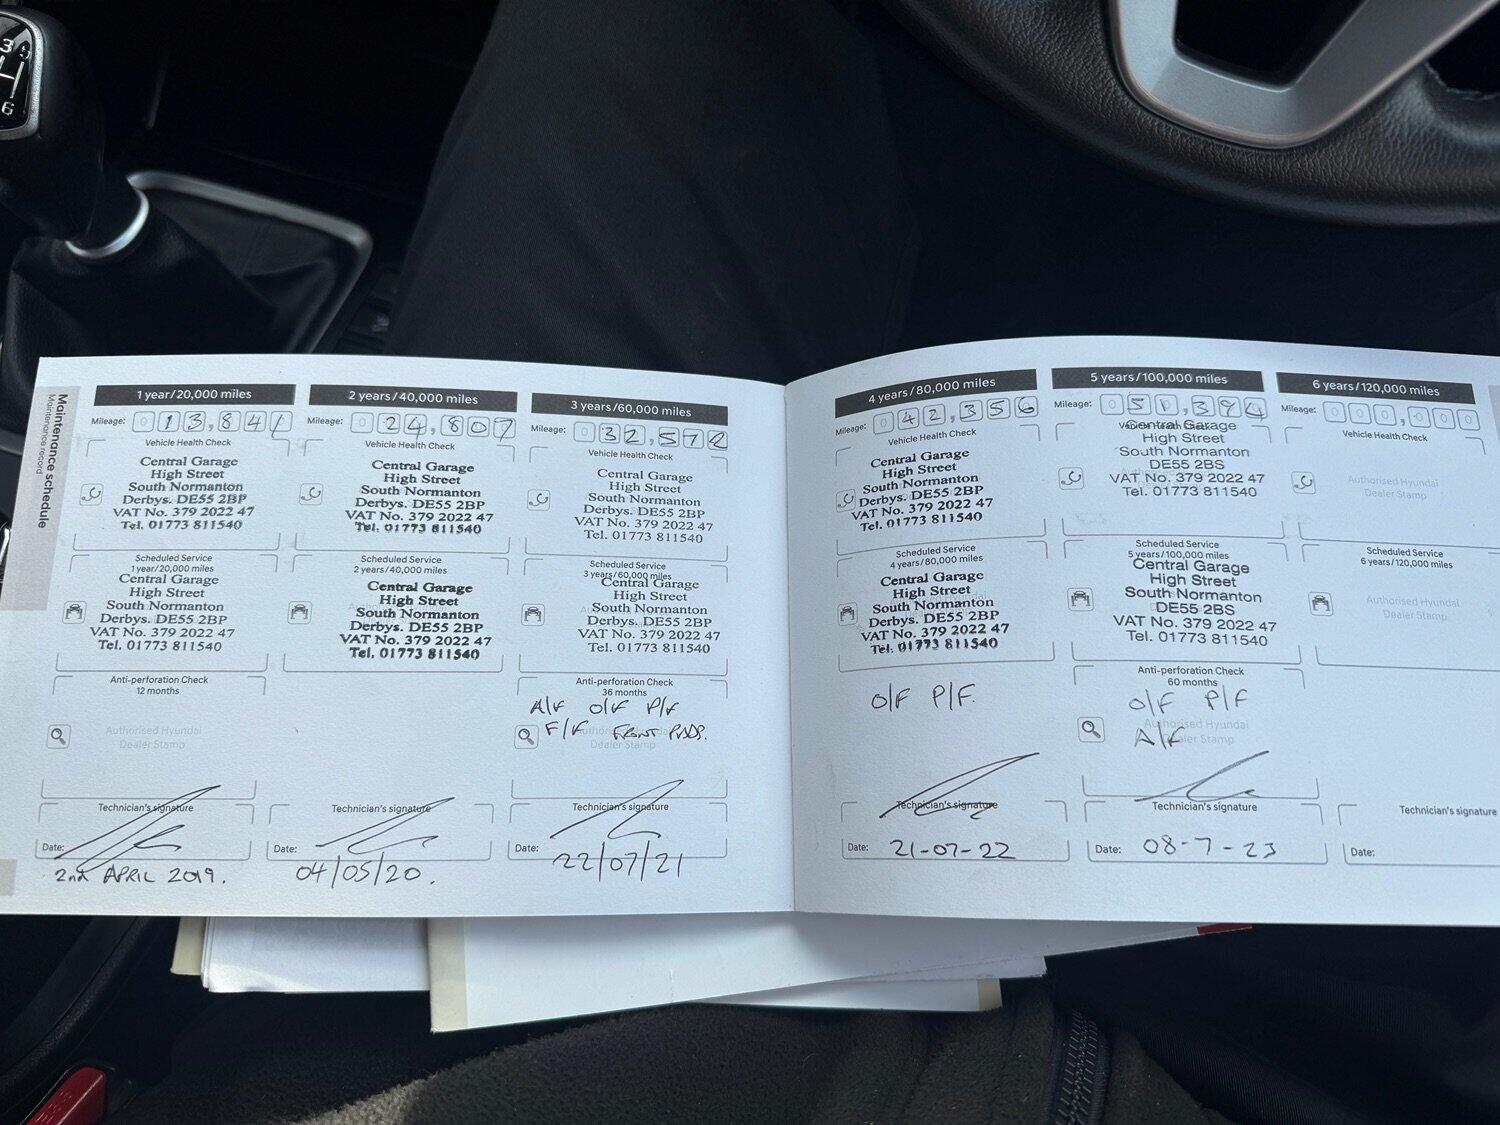 3
5
6
Maintenance schedule
Maintenance record
1 year/20,000 miles
Mileage: 0 13,841
Vehicle Health Check
Central Garage
High Street
South Normanton
Derbys. DE55 2BP
VAT No. 379 2022 47
Tel. 01773 811540
Scheduled Service
1 year/20,000 miles
Central Garage
High Street
South Normanton
Derbys. DE55 2BP
VAT No. 379 2022 47
Tel. 01773 811540
Anti-perforation Check
12 months
Authorised Hyundai
Dealer Stamp
Technician's signature
Date:
2nd APRIL 2019.
2 years/40,000 miles
Mileage: 0 24,807
Vehicle Health Check
Central Garage
High Street
South Normanton
Derbys. DE55 2BP
VAT No. 379 2022 47
Tel. 01773 811540
Scheduled Service
2 years/40,000 miles
Central Garage
High Street
South Normanton
Derbys. DE55 2BP
VAT No. 379 2022 47
Tel. 01773 811540
Technician's signature
Date:
04/05/20.
3 years/60,000 miles
Mileage: 0 32,572
Vehicle Health Check
Central Garage
High Street
South Normanton
Derbys. DE55 2BP
VAT No. 379 2022 47
Tel. 01773 811540
Scheduled Service
3 years/60,000 miles
Central Garage
High Street
South Normanton
Derbys. DE55 2BP
VAT No. 379 2022 47
Tel. 01773 811540
Anti-perforation Check
36 months
A/F O/F P/F
F/F FRONT PADS.
Authorised Hyundai
Dealer Stamp
Technician's signature
Date:
22/07/21
4 years/80,000 miles
Mileage: 0 42,356
Vehicle Health Check
Central Garage
High Street
South Normanton
Derbys. DE55 2BP
VAT No. 379 2022 47
Tel. 01773 811540
Scheduled Service
4 years/80,000 miles
Central Garage
High Street
South Normanton
Derbys. DE55 2BP
VAT No. 379 2022 47
Tel. 01773 811540
O/F P/F.
Technician's signature
Date: 21-07-22
5 years/100,000 miles
Mileage: 0 51,394
Central Garage
High Street
South Normanton
DE55 2BS
VAT No. 379 2022 47
Tel. 01773 811540
Scheduled Service
5 years/100,000 miles
Central Garage
High Street
South Normanton
DE55 2BS
VAT No. 379 2022 47
Tel. 01773 811540
Anti-perforation Check
60 months
O/F P/F
Authorised Hyundai
Dealer Stamp
A/F
Technician's signature
Date: 08-7-23
6 years/120,000 miles
Mileage: 000,000
Vehicle Health Check
Authorised Hyundai
Dealer Stamp
Scheduled Service
6 years/120,000 miles
Authorised Hyundai
Dealer Stamp
Technician's signature
Date: